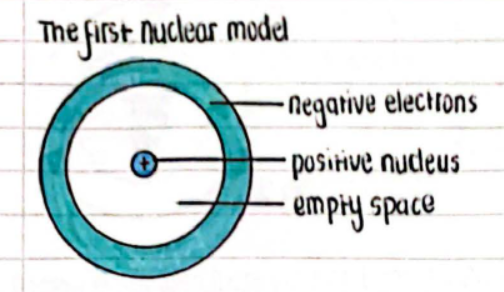 The first nuclear model
negative electrons
+
positive nucleus
empty space